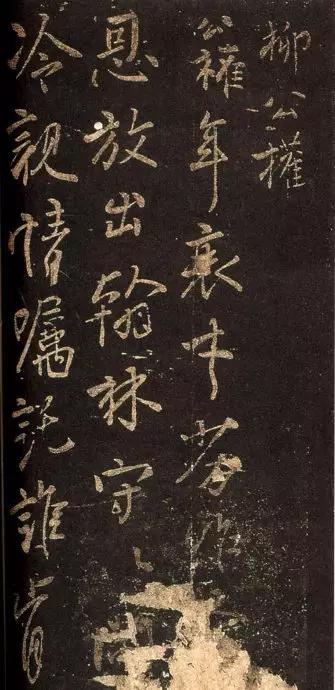 柳公權
公權年衰才劣昨
恩放出翰林守以閑
冷親情囑託誰肯